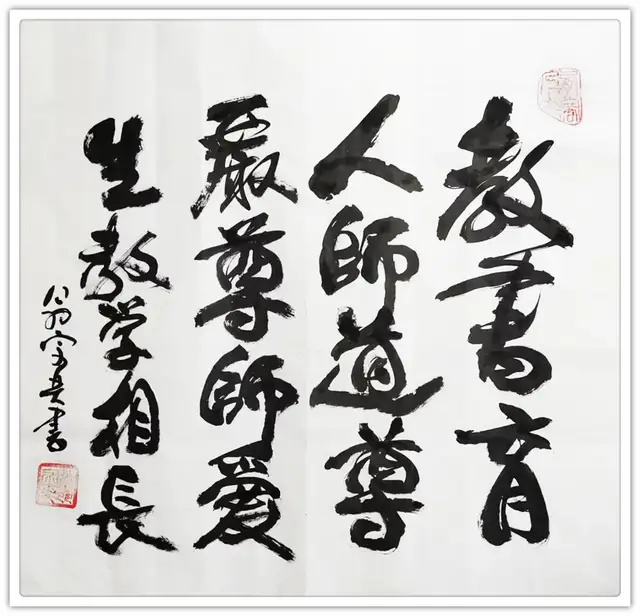 教書育
人師道尊
嚴尊師愛
生教学相長
翁宗奂書